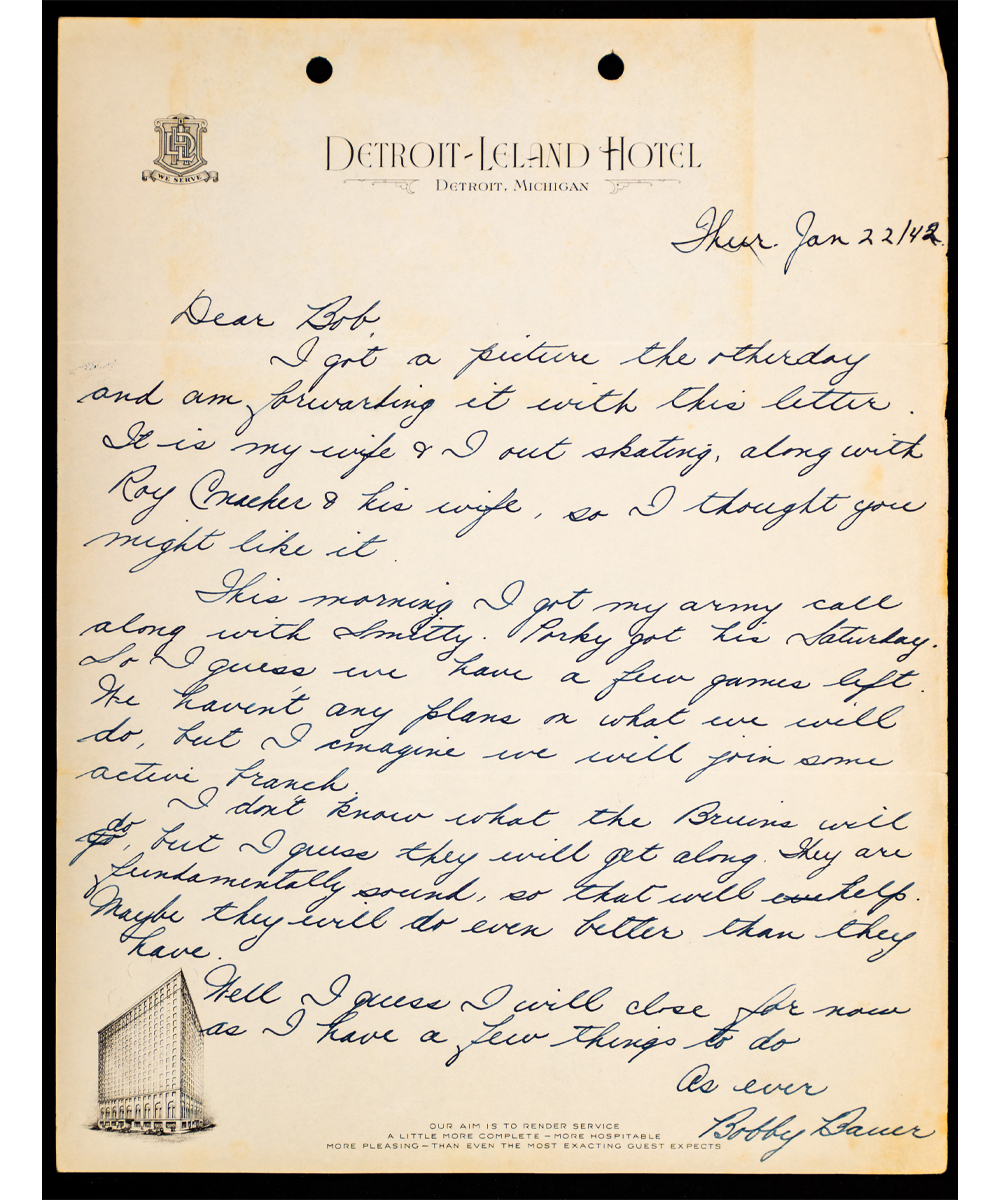 DLH
WE SERVE
DETROIT-LELAND HOTEL
DETROIT, MICHIGAN
Thur. Jan 22/42.
Dear Bob,
I got a picture the otherday
and am forwarding it with this letter.
It is my wife & I out skating, along with
Roy Conacher & his wife, so I thought you
might like it.
This morning I got my army call
along with Smitty. Porky got his Saturday.
So I guess we have a few games left.
We haven't any plans on what we will
do, but I imagine we will join some
active branch.
I don't know what the Bruins will
do, but I guess they will get along. They are
fundamentally sound, so that will help.
Maybe they will do even better than they
have.
Well I guess I will close for now
as I have a few things to do
As ever
Bobby Bauer
OUR AIM IS TO RENDER SERVICE
A LITTLE MORE COMPLETE – MORE HOSPITABLE
MORE PLEASING – THAN EVEN THE MOST EXACTING GUEST EXPECTS